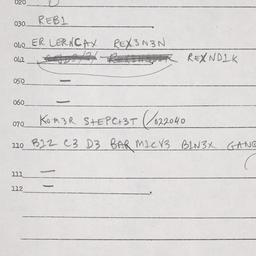 020
030 REB1
040 ER LERNCAX REX3N3N
041 REXND1K
050 —
060 —
070 KOM3R STEPC13T (/022040
110 B12 C3 D3 BAR M1CV3 B1N3X GANG
111 —
112 —